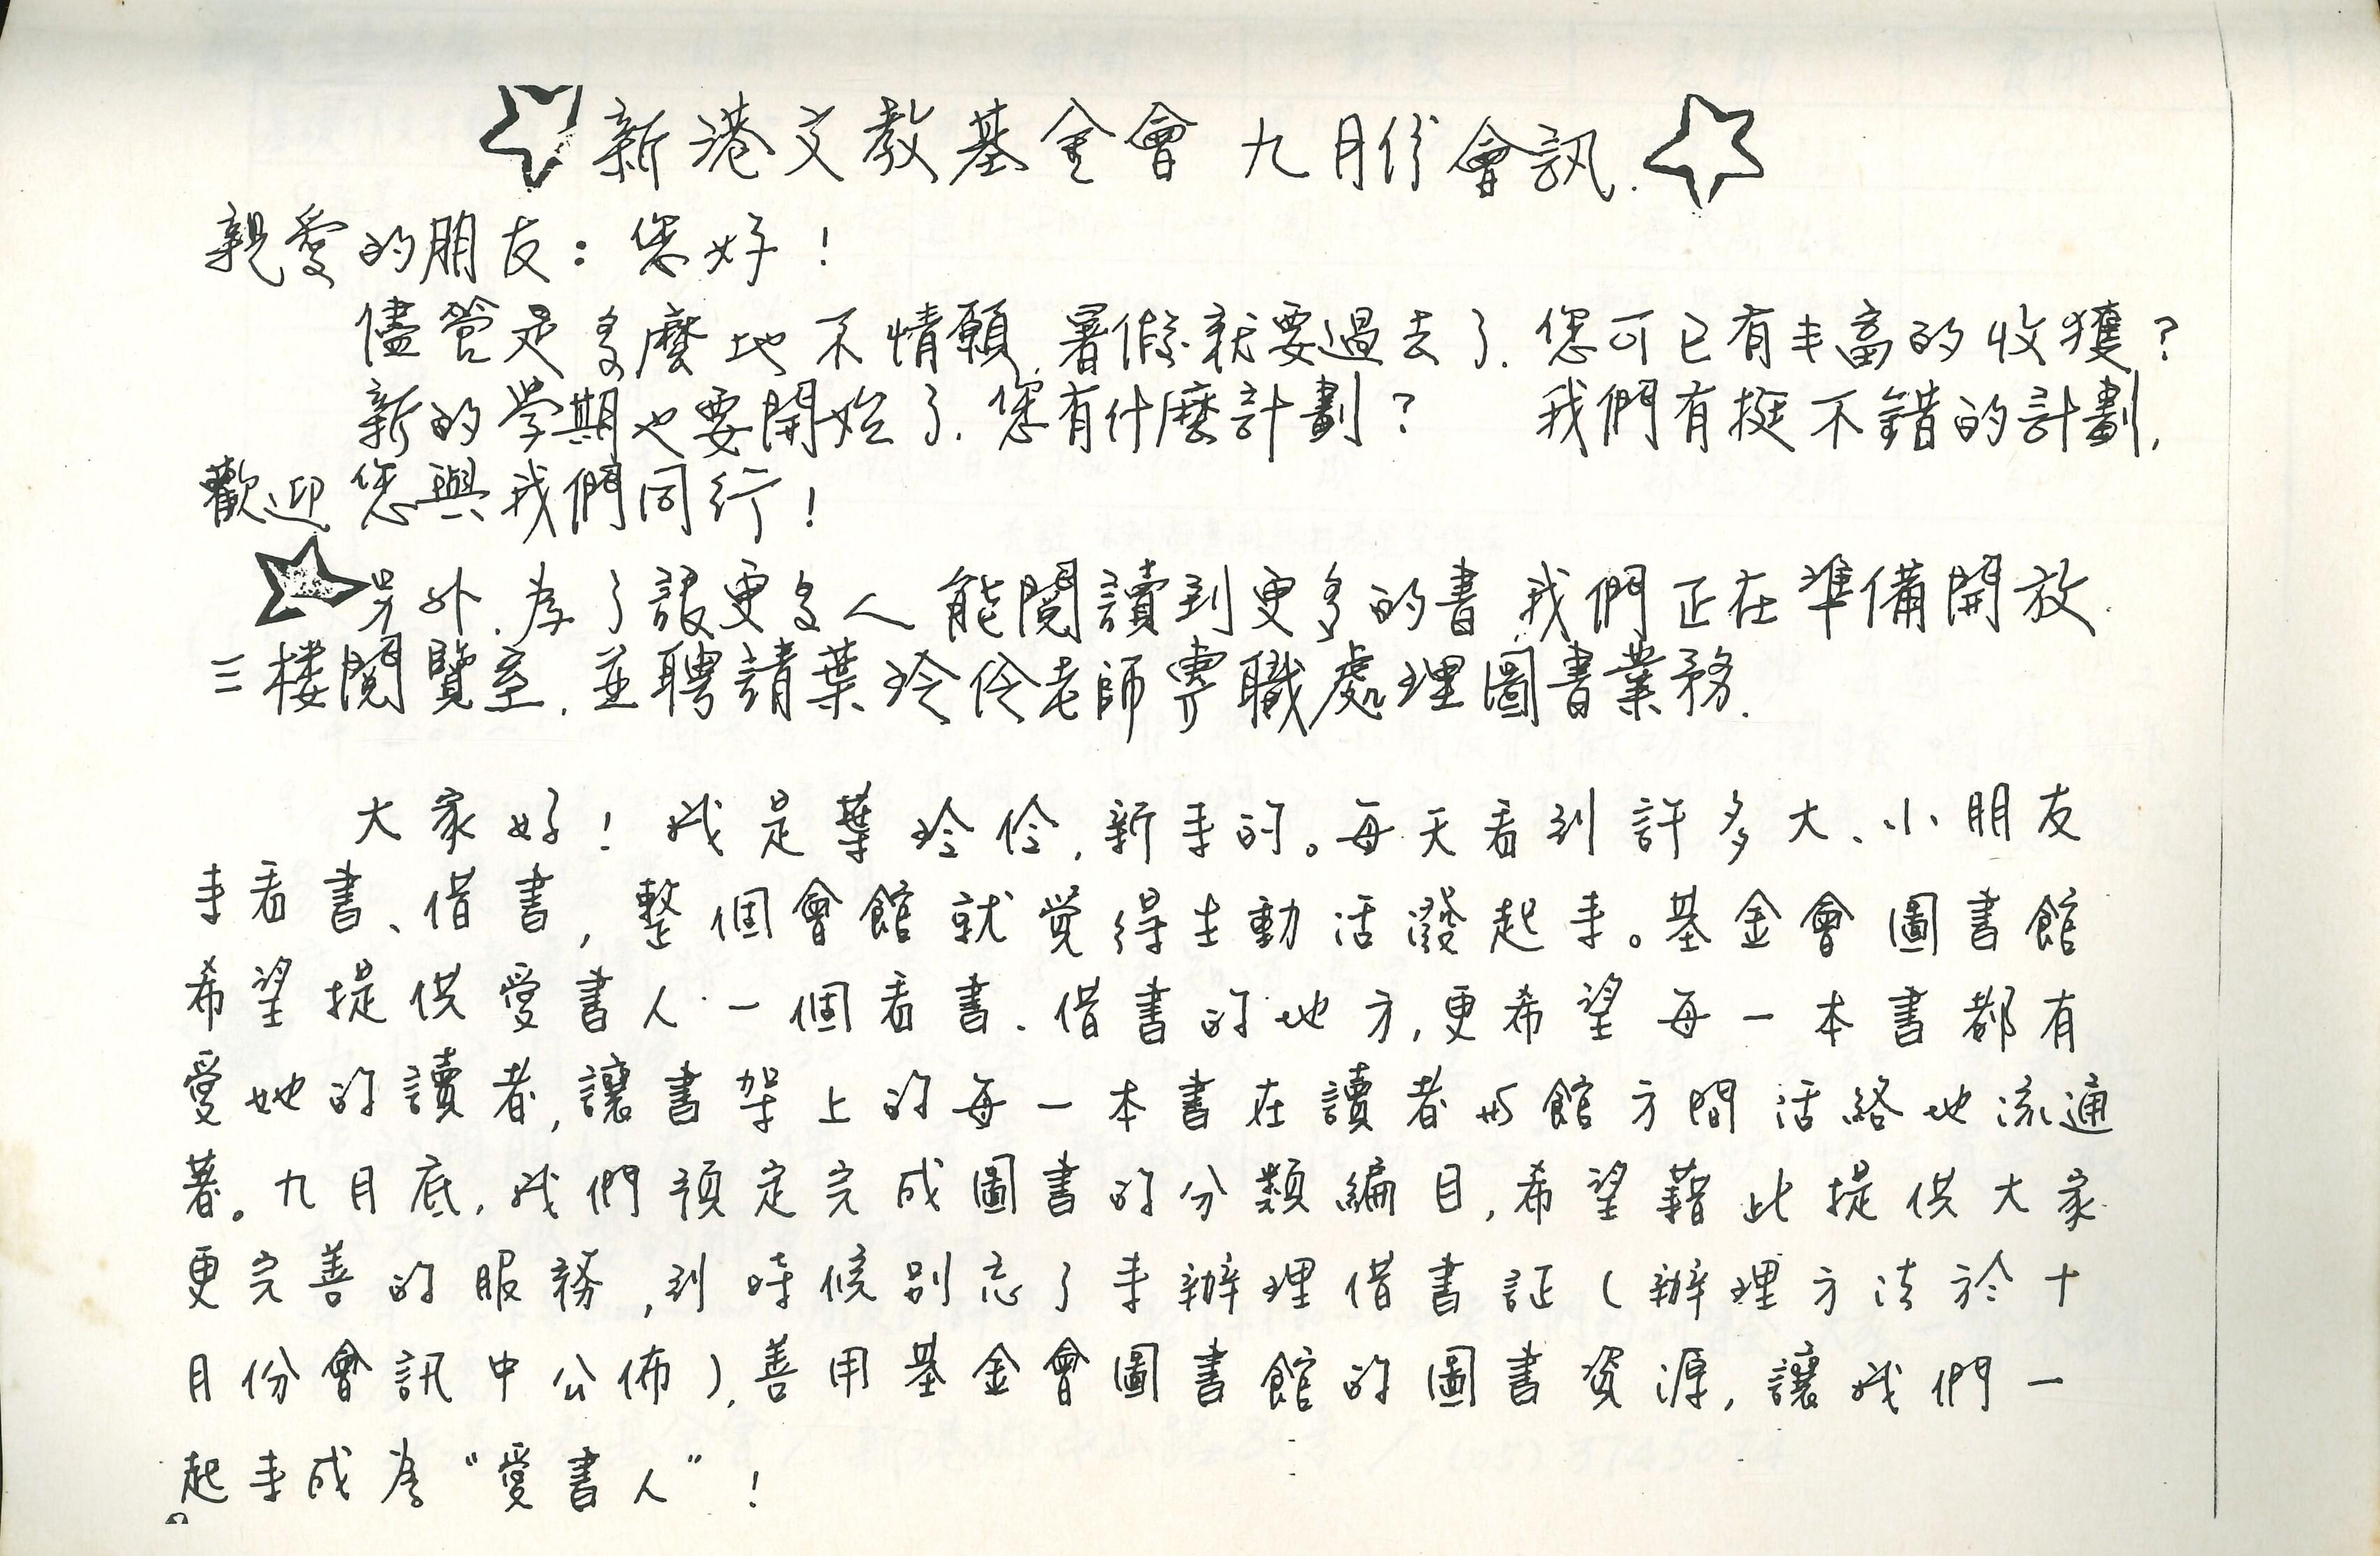 新港文教基金會 九月份會訊.
親愛的朋友：您好！
儘管是多麼地不情願,暑假就要過去了.您可已有丰富的收獲？
新的学期也要開始了.您有什麼計劃？ 我們有挺不錯的計劃,
歡迎您與我們同行！
另外,為了讓更多人能閱讀到更多的書,我們正在準備開放
三楼閱覽室,並聘請葉玲伶老師專職處理圖書業務.
大家好！我是葉玲伶,新来的。每天看到許多大、小朋友
来看書、借書,整個會館就覺得生動活潑起来。基金會圖書館
希望提供愛書人一個看書、借書的地方,更希望每一本書都有
愛她的讀者,讓書架上的每一本書在讀者与館方間活絡地流通
著。九月底,我們預定完成圖書的分類編目,希望藉此提供大家
更完善的服務,到時候別忘了来辦理借書証(辦理方法於十
月份會訊中公佈),善用基金會圖書館的圖書資源,讓我們一
起来成為“愛書人”！